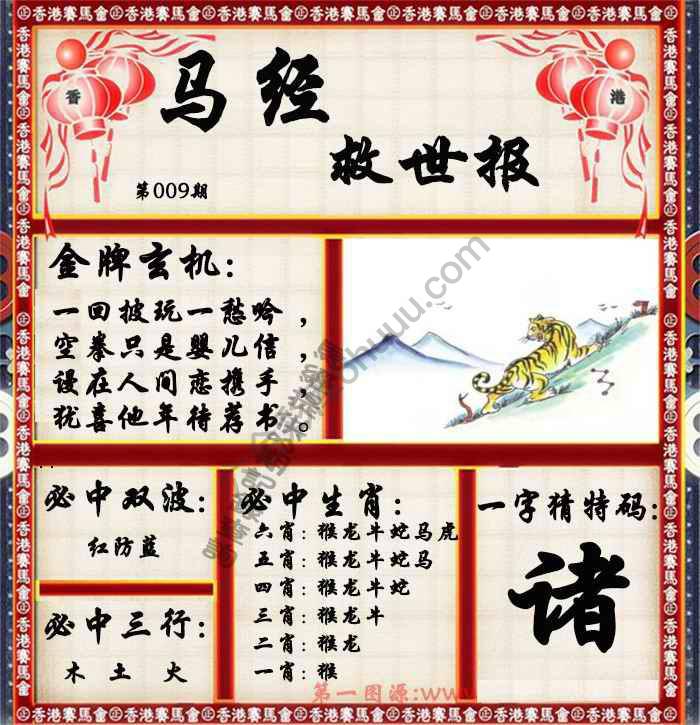 香港賽馬會
香 港
马经
救世报
第009期
金牌玄机：
一回披玩一愁吟，
空拳只是婴儿信，
谩在人间恋携手，
犹喜他年待荐书。
必中双波：
红防蓝
必中三行：
木 土 火
必中生肖：
六肖：猴龙牛蛇马虎
五肖：猴龙牛蛇马
四肖：猴龙牛蛇
三肖：猴龙牛
二肖：猴龙
一肖：猴
一字猜特码：
诸
第一图源:ww